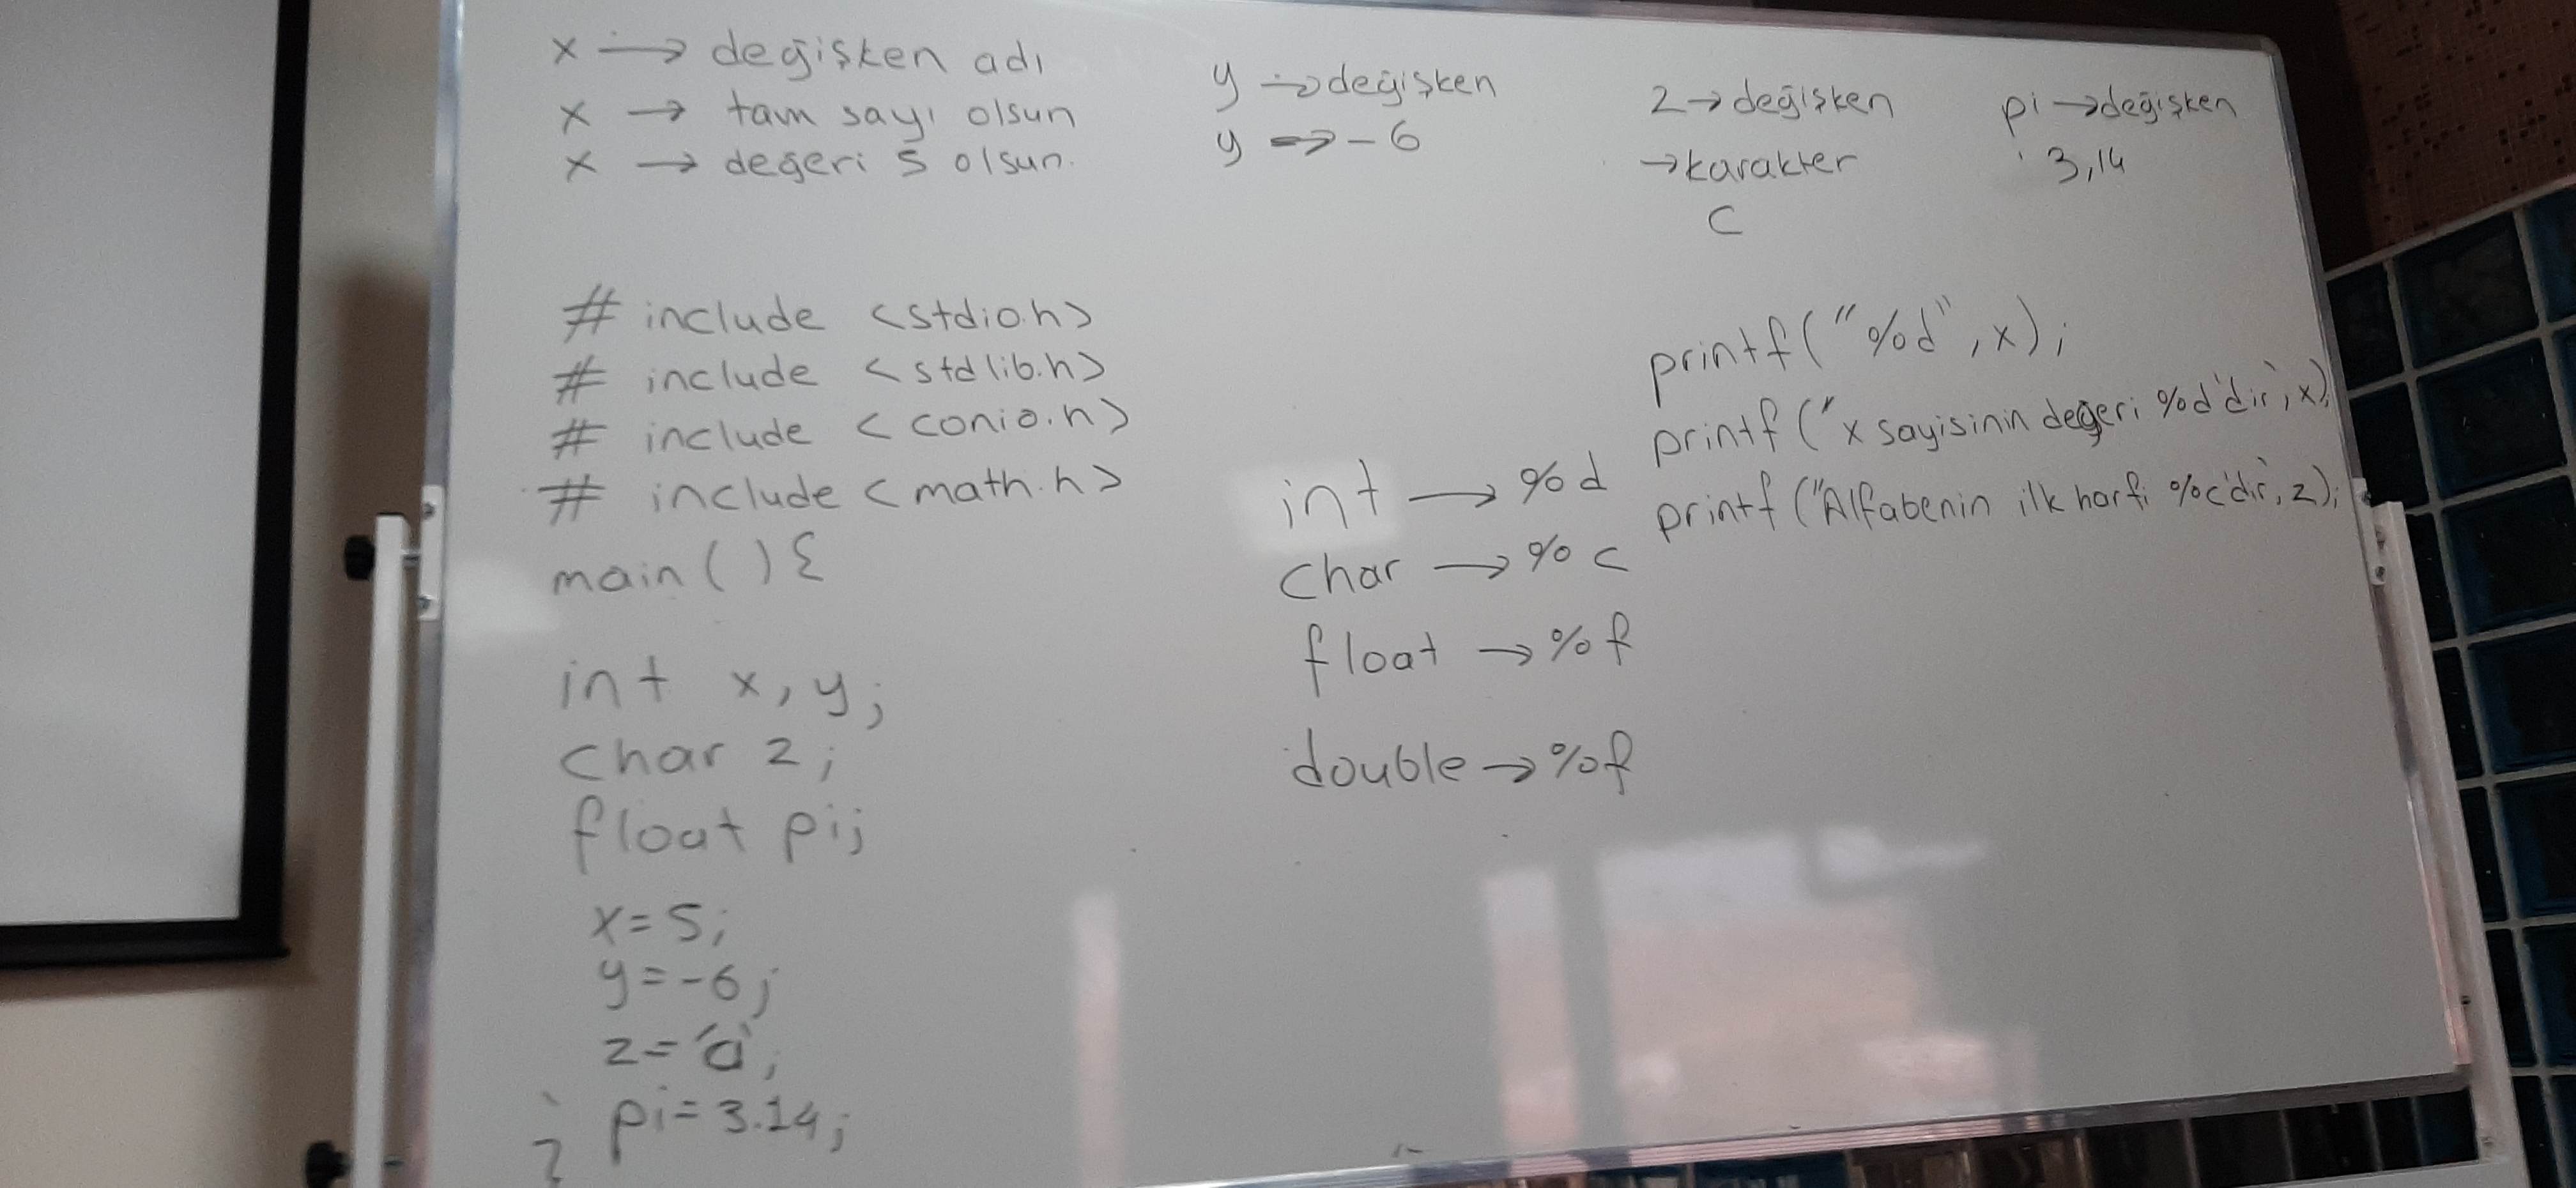 x → değişken adı
x → tam sayı olsun
x → değeri 5 olsun.
y → değişken
y → -6
z → değişken
→ karakter
C
pi → değişken
3,14
# include <stdio.h>
# include <stdlib.h>
# include <conio.h>
# include <math.h>
main ( ) {
int x, y;
char z;
float pi;
x = 5;
y = -6;
z = 'a';
pi = 3.14;
}
int → %d
char → %c
float → %f
double → %f
printf("%d", x);
printf("x sayisinin değeri %d'dir", x);
printf("Alfabenin ilk harfi %c'dir", z);